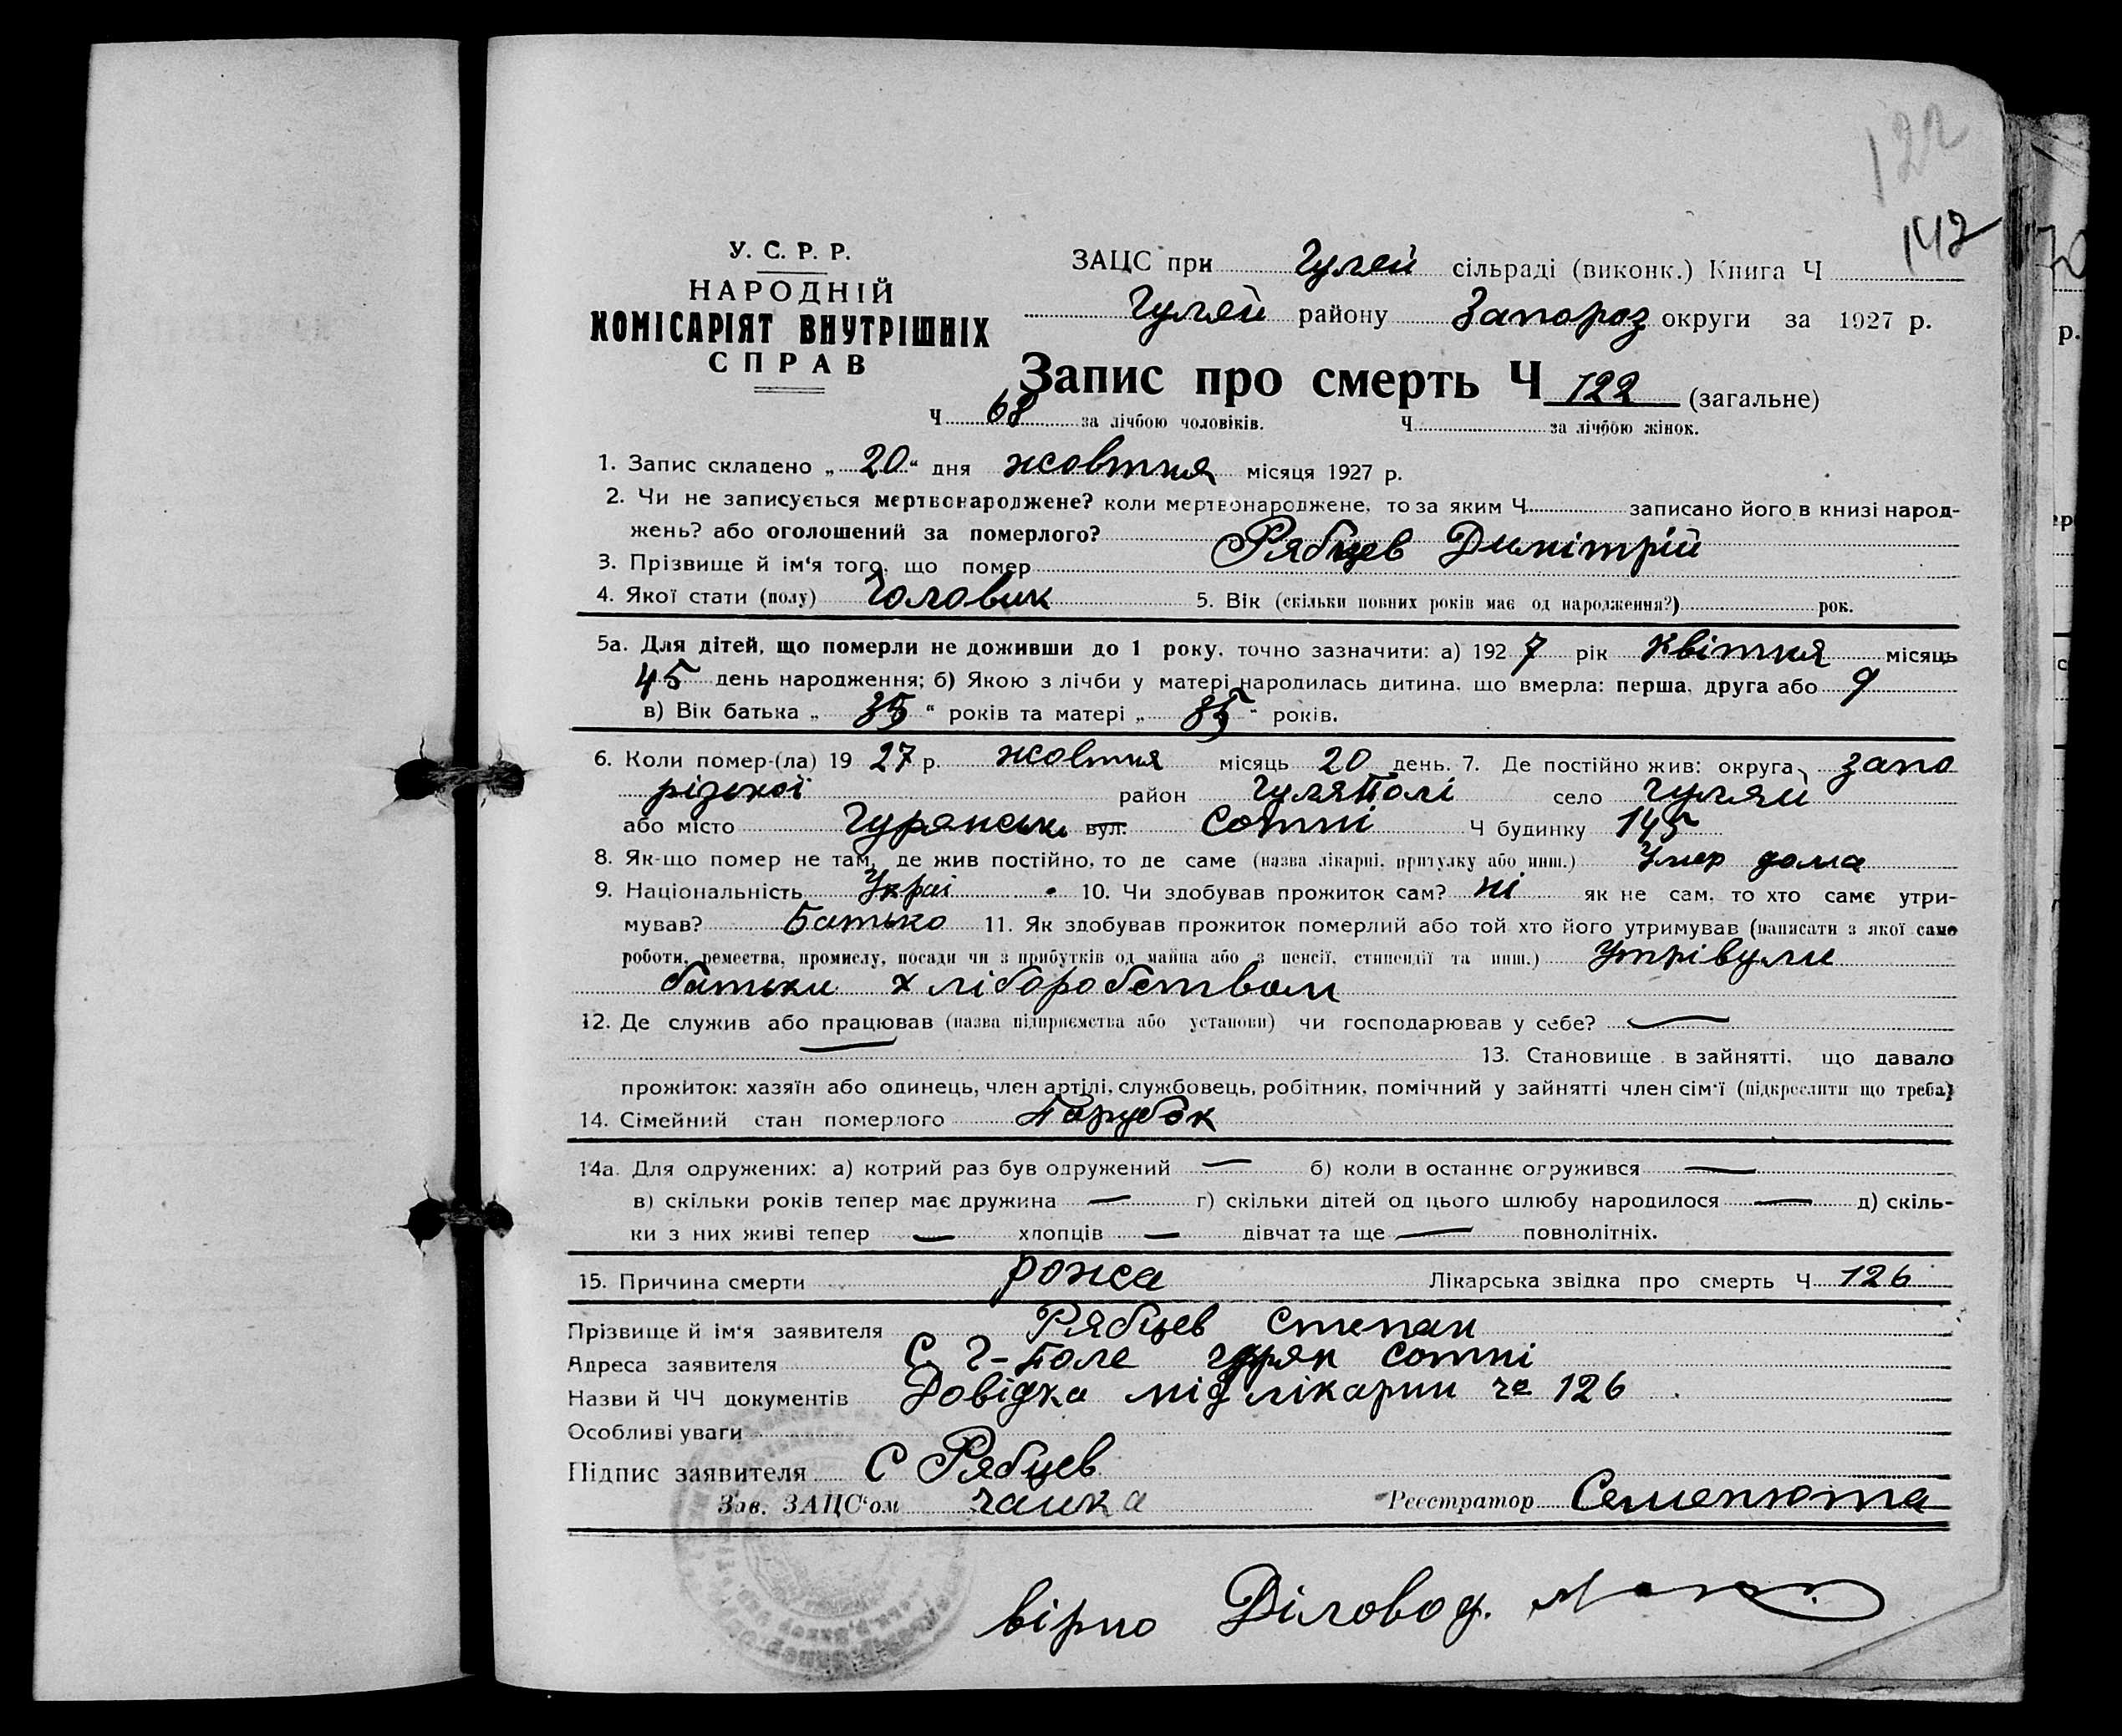 122
142
У. С. Р. Р.
НАРОДНІЙ
КОМІСАРІЯТ ВНУТРІШНІХ
СПРАВ
ЗАЦС при Гуляй сільраді (виконк.) Книга Ч
Гуляй району Запороз округи за 1927 р.
Запис про смерть Ч 122 (загальне)
Ч 68 за лічбою чоловіків. Ч за лічбою жінок.
1. Запис складено „ 20 “ дня жовтня місяця 1927 р.
2. Чи не записується мертвонароджене? коли мертвонароджене, то за яким Ч записано його в книзі народ-
жень? або оголошений за померлого?
3. Прізвище й ім‘я того, що помер Рябцев Димітрій
4. Якої стати (полу) Чоловик 5. Вік (скільки повних років має од народження?) рок.
5а. Для дітей, що померли не доживши до 1 року, точно зазначити: а) 192 7 рік Квітня місяць
45 день народження; б) Якою з лічби у матері народилась дитина, що вмерла: перша, друга або 9
в) Вік батька „ 35 “ років та матері „ 35 “ років.
6. Коли помер-(ла) 19 27 р. жовтня місяць 20 день. 7. Де постійно жив: округа запо
різької район Гуляйполі село Гуляй
або місто Гурянськ вул. сотні Ч будинку 145
8. Як-що помер не там, де жив постійно, то де саме (назва лікарні, притулку або инш.) Умер дома
9. Національність Украі 10. Чи здобував прожиток сам? ні як не сам, то хто саме утри-
мував? Батько 11. Як здобував прожиток померлий або той хто його утримував (написати з якої саме
роботи, ремества, промислу, посади чи з прибутків од майна або з пенсії, стипендії та инш.) Утрівули
батьки хліборобством
12. Де служив або працював (назва підприємства або установи) чи господарював у себе? —
— 13. Становище в зайнятті, що давало
прожиток: хазяїн або одинець, член артілі, службовець, робітник, помічний у зайнятті член сім‘ї (підкреслити що треба)
14. Сімейний стан померлого Парубок
14а. Для одружених: а) котрий раз був одружений — б) коли в останнє огружився —
в) скільки років тепер має дружина — г) скільки дітей од цього шлюбу народилося — д) скіль-
ки з них живі тепер — хлопців — дівчат та ще — повнолітніх.
15. Причина смерти рожа Лікарська звідка про смерть Ч 126
Прізвище й ім‘я заявителя Рябцев Степан
Адреса заявителя С. Г-Поле гурян сотні
Назви й ЧЧ документів Довідка від лікарии ча 126
Особливі уваги
Підпис заявителя С Рябцев
Зав. ЗАЦС‘ом чайка Реєстратор Семенюта
вірно Діловод.